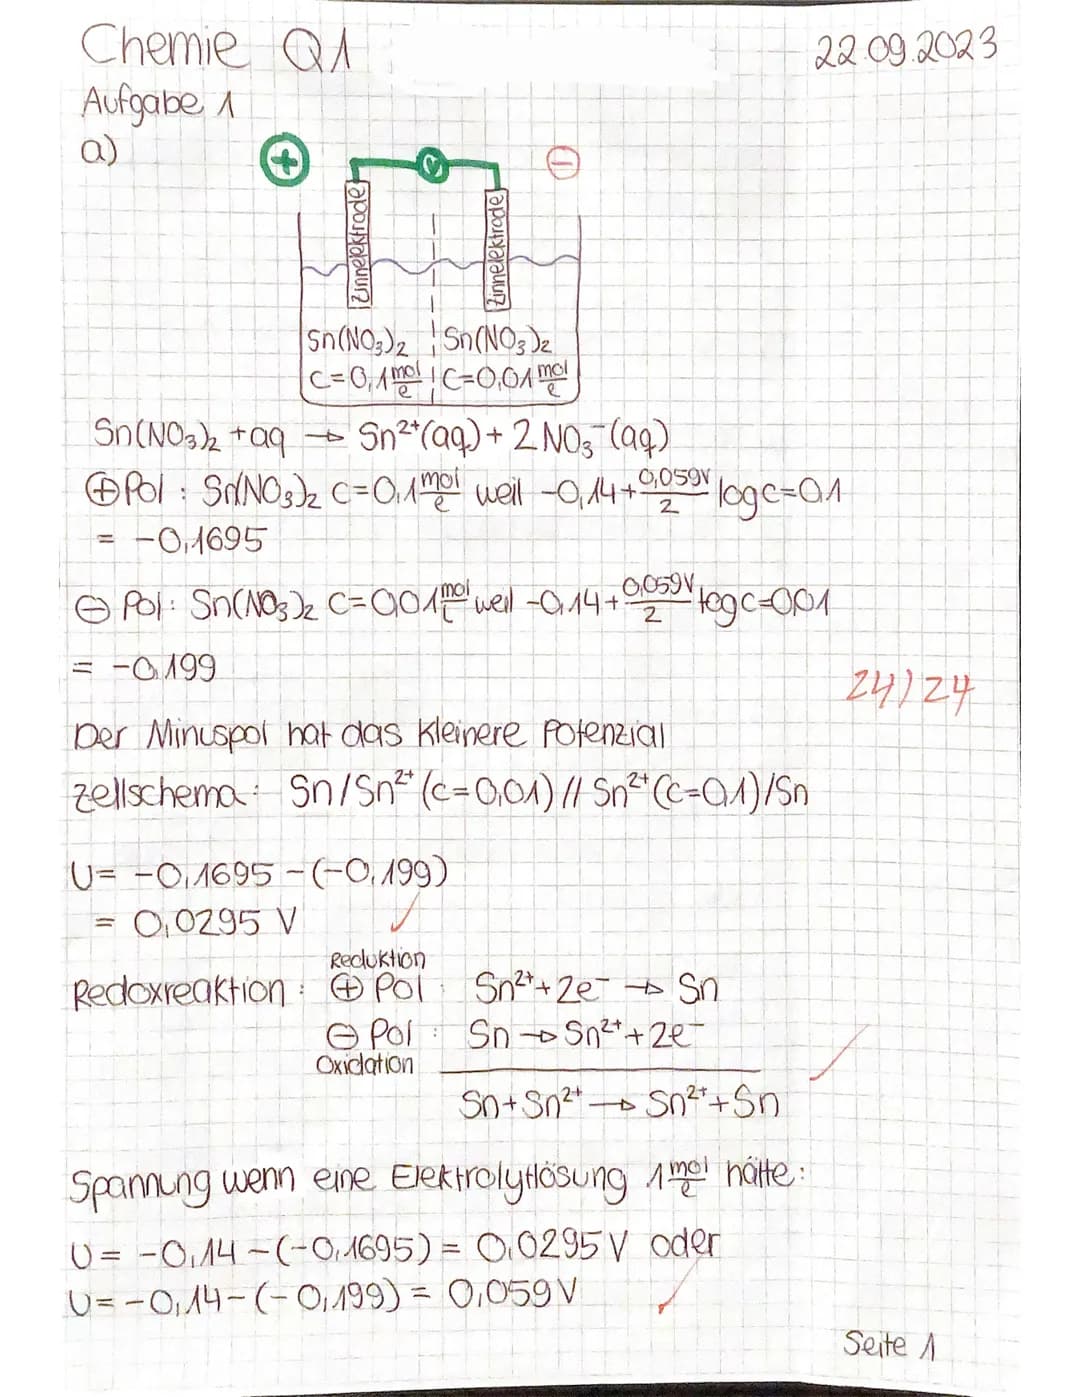 Chemie Q1 22.09.2023
Aufgabe 1
a)
+ V −
Zinnelektrode Zinnelektrode
Sn(NO₃)₂ Sn(NO₃)₂
C=0,1 mol/l C=0,01 mol/l
Sn(NO₃)₂ +aq → Sn²⁺(aq) + 2 NO₃⁻(aq)
⊕ Pol : Sn(NO₃)₂ C=0,1 mol/l weil -0,14+ 0,059V/2 log c=0,1
= -0,1695
⊖ Pol : Sn(NO₃)₂ C=0,01 mol/l weil -0,14+ 0,059V/2 log c=0,01
= -0,199
24/24
Der Minuspol hat das kleinere Potenzial
Zellschema: Sn/Sn²⁺ (c=0,01) // Sn²⁺ (c=0,1)/Sn
U= -0,1695 -(-0,199)
= 0,0295 V
Reduktion
Redoxreaktion : ⊕ Pol : Sn²⁺ + 2e⁻ → Sn
⊖ Pol : Sn → Sn²⁺ + 2e⁻
Oxidation
Sn + Sn²⁺ → Sn²⁺ + Sn
Spannung wenn eine Elektrolytlösung 1 mol/l hätte:
U= -0,14 -(-0,1695) = 0,0295 V oder
U= -0,14 -(-0,199) = 0,059 V
Seite 1